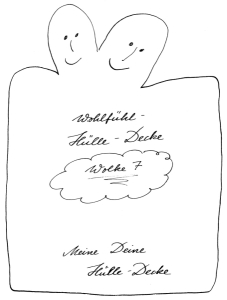 Wohlfühl-
Hülle-Decke
Wolke 7
Meine Deine
Hülle-Decke